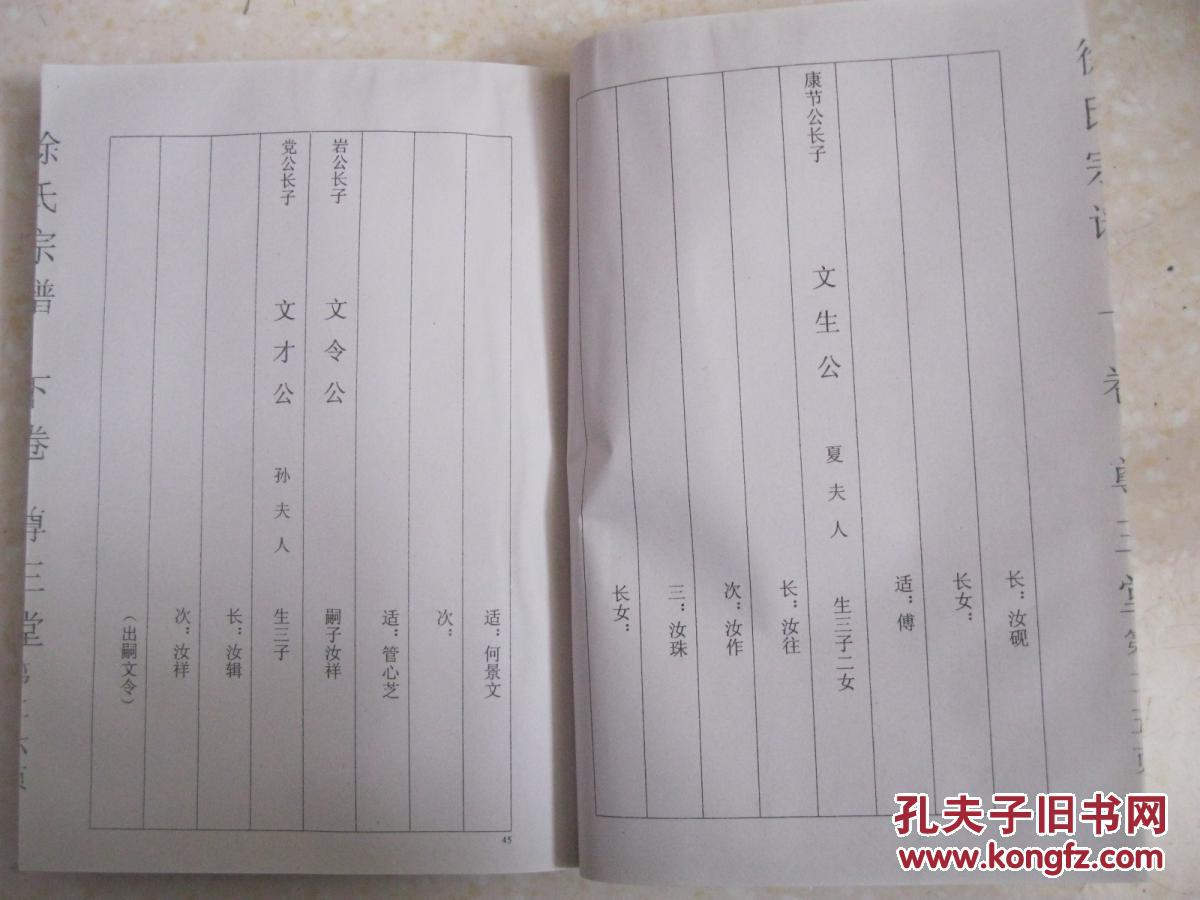 长：汝砚
长女：
适：傅
康节公长子 文生公 夏夫人 生三子二女
长：汝往
次：汝作
三：汝珠
长女：
适：何景文
次：
适：管心芝
岩公长子 文令公 嗣子汝祥
党公长子 文才公 孙夫人 生三子
长：汝辑
次：汝祥
（出嗣文令）
徐氏宗谱 下卷 尊三堂
45
孔夫子旧书网
www.kongfz.com